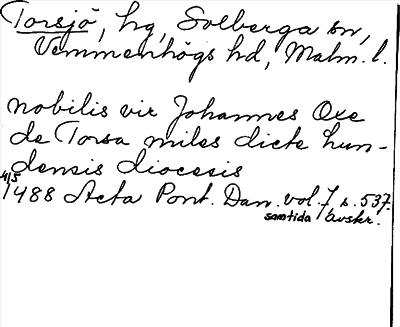 Torsjö, hg, Solberga sn,
Vemmenhögs hd, Malm. l.
nobilis vir Johannes Oxe
de Torsa miles dicte lun-
densis diocesis
4/5
1488 Acta Pont. Dan. vol. 7 s. 537.
samtida avskr.